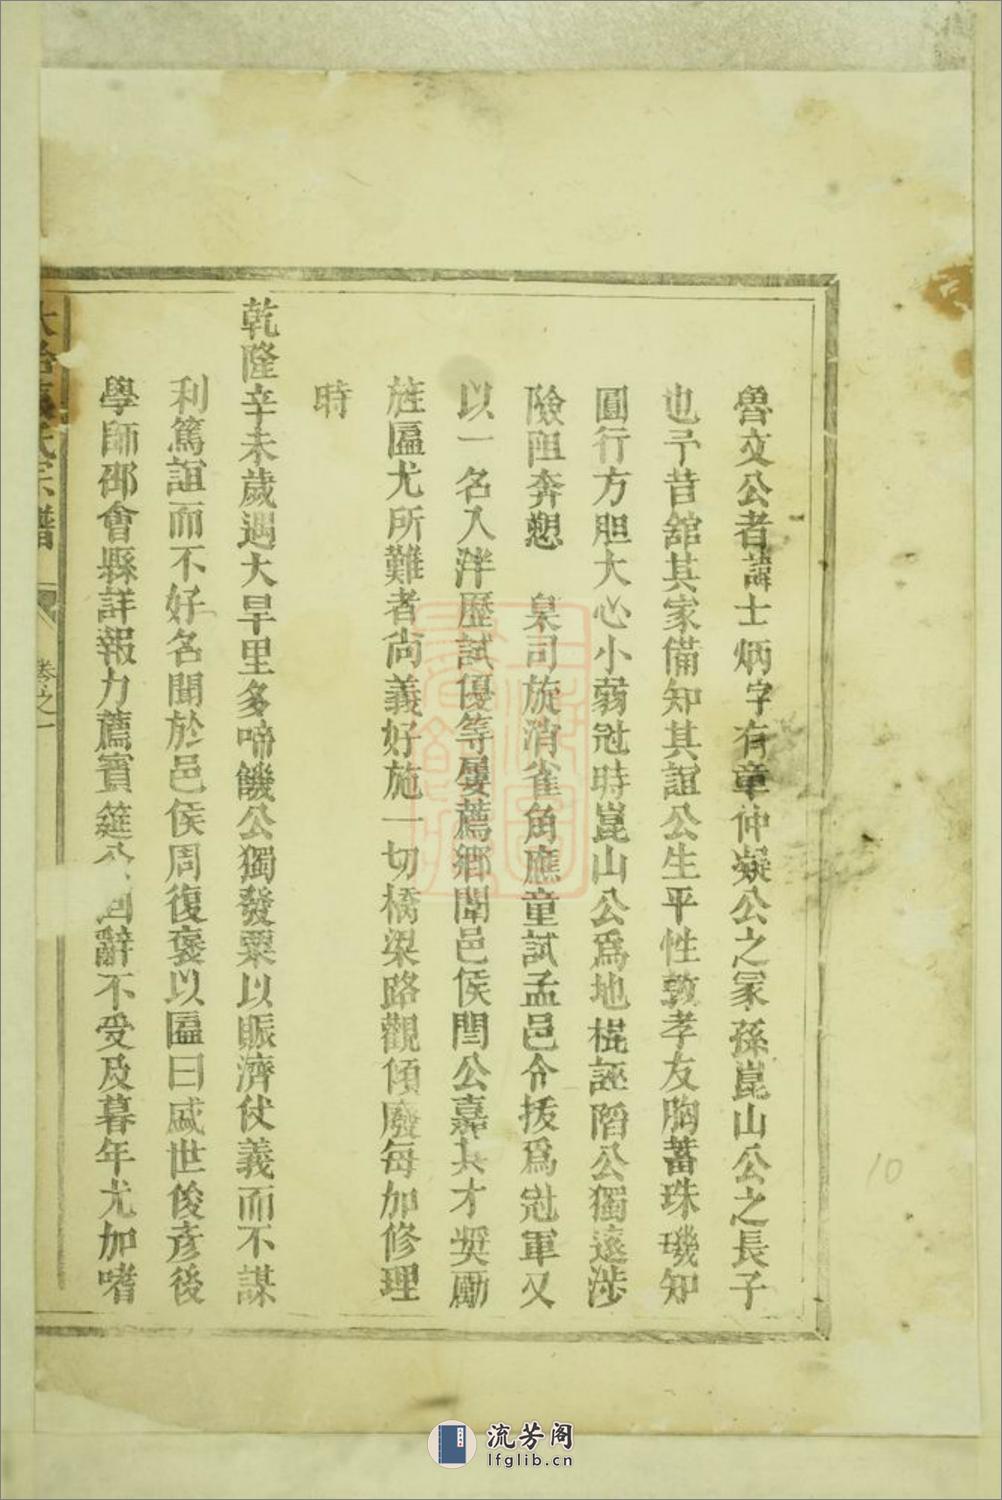 魯文公者諱士炳字有章仲凝公之冡孫崑山公之長子
也予昔舘其家備知其誼公生平性敦孝友胸蓄珠璣知
圓行方胆大心小弱冠時崑山公爲地棍誣陷公獨遠涉
險阻奔愬 臬司旋消雀角應童試孟邑令拔爲冠軍又
以一名入泮歷試優等屢薦鄉闈邑侯閆公嘉其才奬勵
旌匾尤所難者尚義好施一切橋梁路觀傾廢每加修理
時
乾隆辛未歲遇大旱里多啼饑公獨發粟以賑濟伏義而不謀
利篤誼而不好名聞於邑侯周復褒以匾曰盛世俊彥後
學師邵會縣詳報力薦賓筵公 辭不受及暮年尤加嗜
大冶 氏宗譜 卷之一
10
流芳阁
lfglib.cn